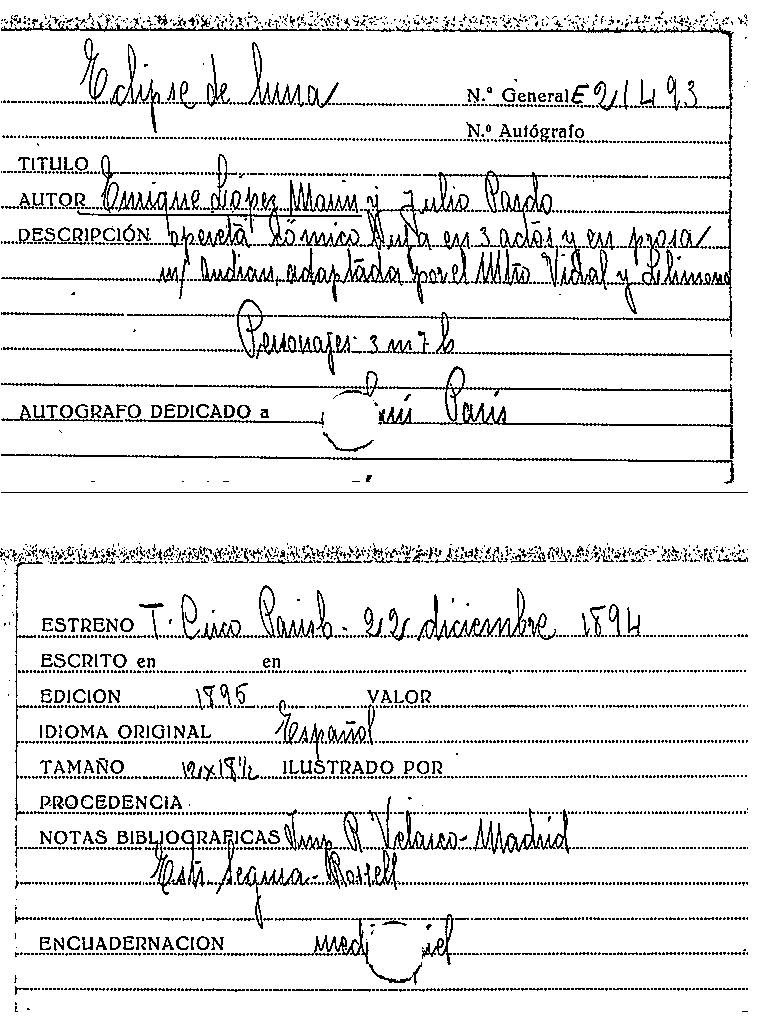 Eclipse de luna
N.º General E 21493
N.º Autógrafo
TITULO
AUTOR Enrique López Marin y Julio Pardo
DESCRIPCIÓN opereta cómico bufa en 3 actos y en prosa
m/ Audran, adaptada por el Mtro Vidal y Llimona
Personajes 3 m 7 h
AUTOGRAFO DEDICADO a París
ESTRENO T. Circo Parish - 22 diciembre 1894
ESCRITO en en
EDICION 1895 VALOR
IDIOMA ORIGINAL Español
TAMAÑO 12x18½ ILUSTRADO POR
PROCEDENCIA
NOTAS BIBLIOGRAFICAS Imp R Velasco - Madrid
Estr Segura - Rossell
ENCUADERNACION